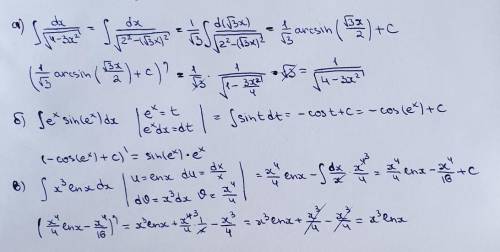 а) ∫ dx/√(4-3x²) = ∫ dx/√(2²-(√3x)²) = 1/√3 ∫ d(√3x)/√(2²-(√3x)²) = 1/√3 arcsin(√3x/2) + C
(1/√3 arcsin(√3x/2) + C)' = 1/√3 · 1/√(1-3x²/4) · √3 = 1/√(4-3x²)
б) ∫ eˣ sin(eˣ)dx | eˣ = t eˣdx = dt | = ∫ sin t dt = -cos t + C = -cos(eˣ) + C
(-cos(eˣ) + C)' = sin(eˣ) · eˣ
в) ∫ x³ lnx dx | u = lnx du = dx/x dϑ = x³dx ϑ = x⁴/4 | = x⁴/4 lnx - ∫ dx/x · x⁴³/4 = x⁴/4 lnx - x⁴/16 + C
(x⁴/4 lnx - x⁴/16)' = x³ lnx + x⁴³/4 · 1/x - x³/4 = x³ lnx + x³/4 - x³/4 = x³ lnx